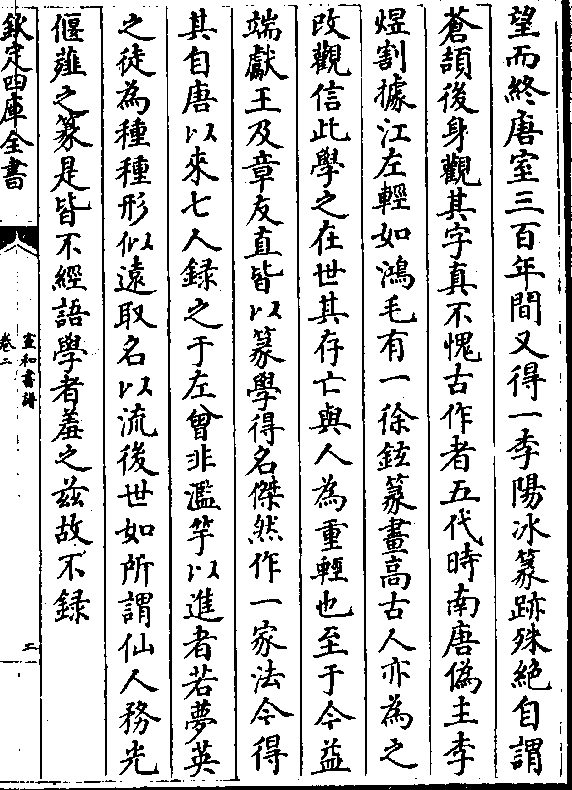 望而終唐室三百年間又得一李陽冰篆跡殊絶自謂
蒼頡後身觀其字真不愧古作者五代時南唐偽主李
煜割據江左輕如鴻毛有一徐鉉篆畫高古人亦為之
改觀信此學之在世其存亡與人為重輕也至于今益
端獻王及章友直皆以篆學得名傑然作一家法今得
其自唐以來七人録之于左曾非濫竽以進者若夢英
之徒為種種形似逺取名以流後世如所謂仙人務光
偃薤之篆是皆不經語學者羞之兹故不録
欽定四庫全書
宣和書譜
卷二
二